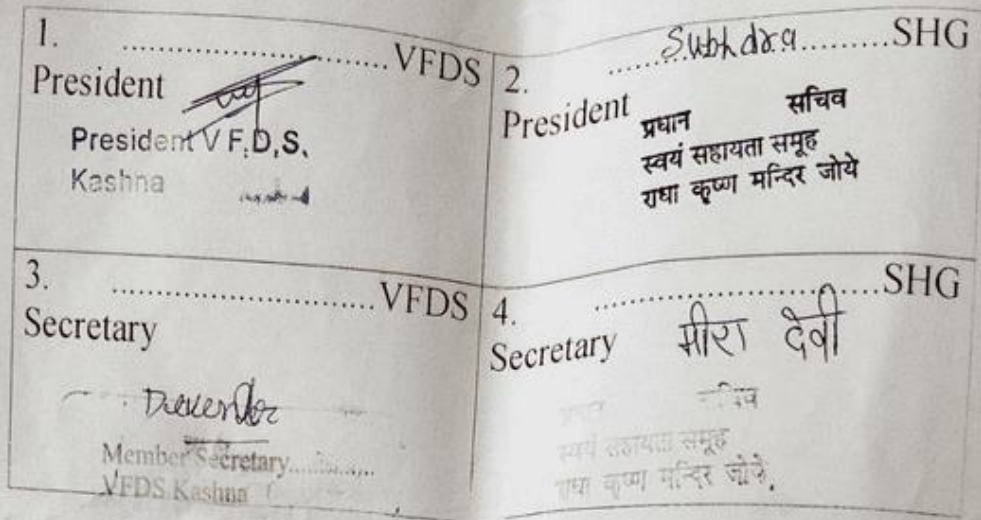 1. ........................... VFDS
President
President V F.D.S.
Kashna
2. ....Subhdra.........SHG
President
प्रधान सचिव
स्वयं सहायता समूह
राधा कृष्ण मन्दिर जोये
3. ........................... VFDS
Secretary
Devender
Member Secretary............
VFDS Kashna
4. ...........................SHG
Secretary
मीरा देवी
प्रधान सचिव
स्वयं सहायता समूह
राधा कृष्ण मन्दिर जोये